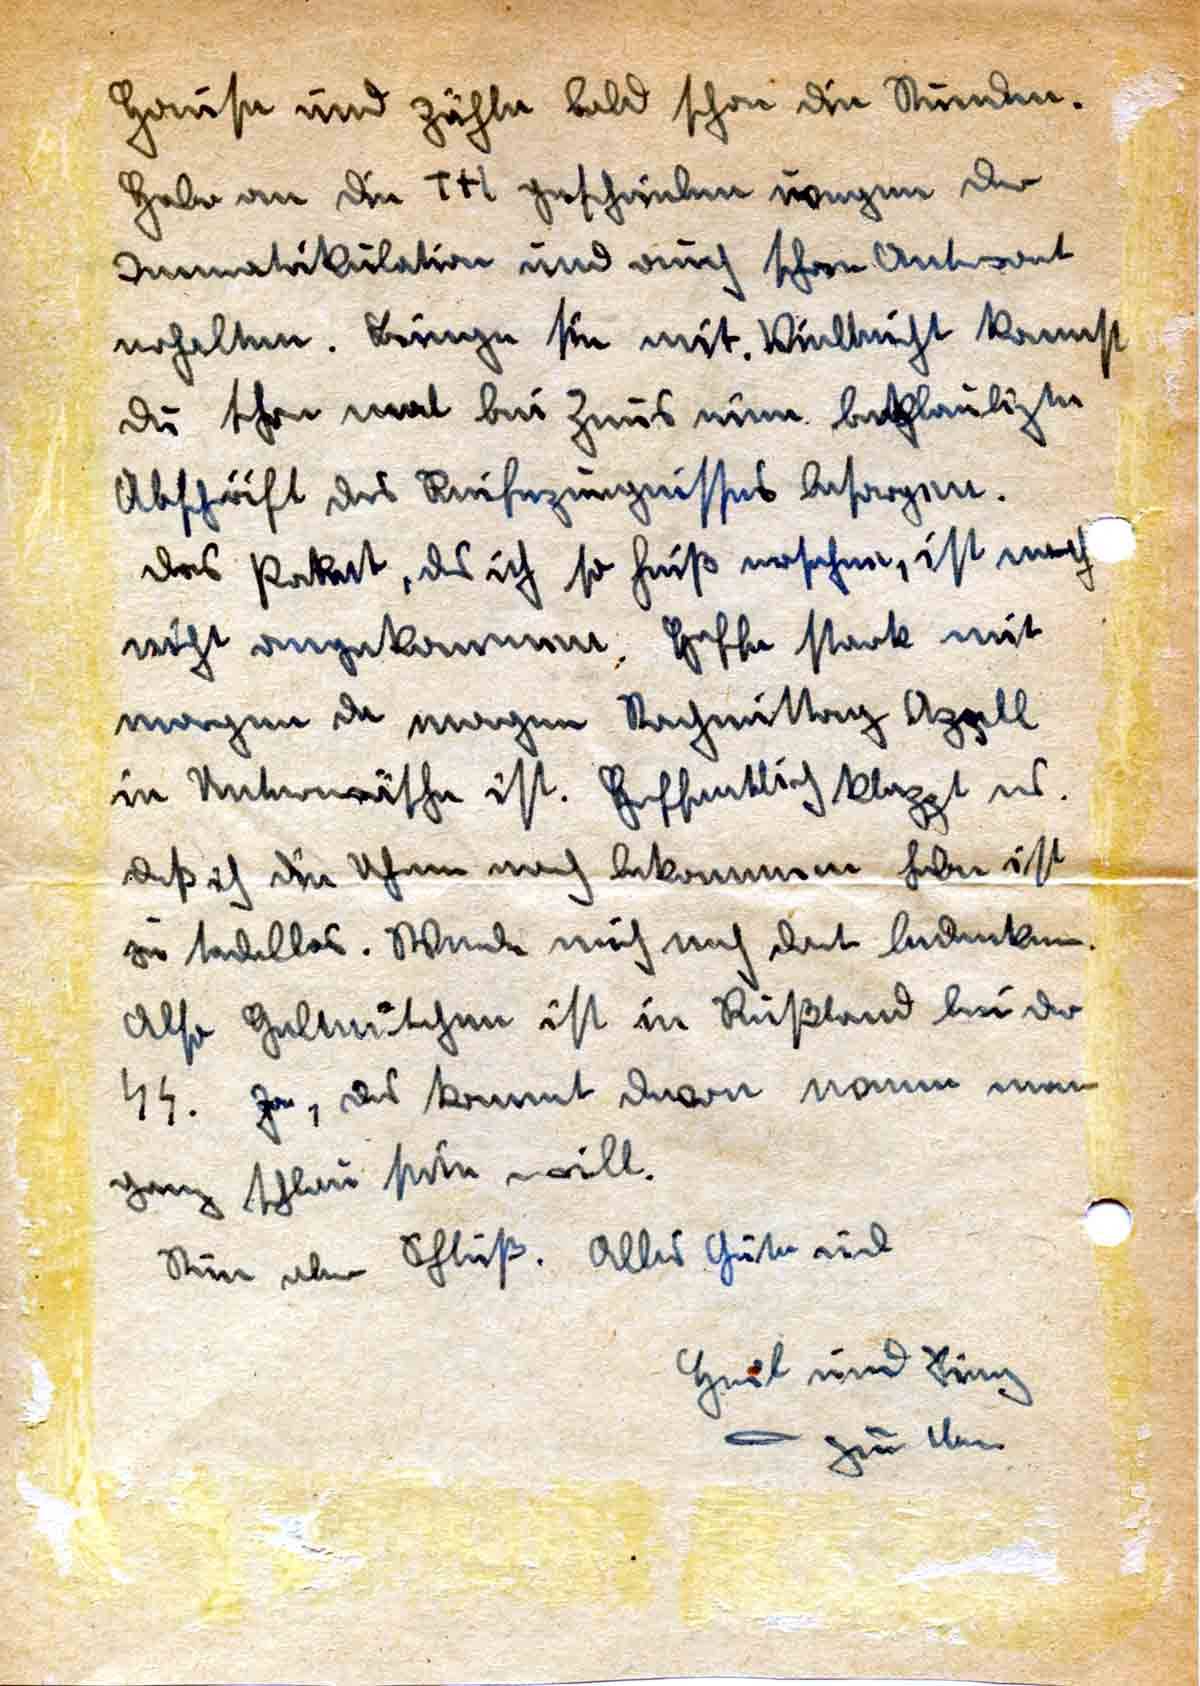 Hause und zähle bald schon die Stunden.
Habe an die TH geschrieben wegen der
Immatrikulation und auch schon Antwort
erhalten. Bringe sie mit. Vielleicht kannst
du schon mal bei Zeus eine beglaubigte
Abschrift des Reifezeugnisses besorgen.
das Paket, das ich so heiß ersehne, ist noch
nicht angekommen. Hoffe stark mit
morgen da morgen Nachmittag Appell
in Unterwäsche ist. Hoffentlich klappt es.
daß ich die Uhren noch bekommen habe ist
ja tadellos. Werde mich noch dort bedanken.
Also Helmütchen ist in Rußland bei der
SS. Ja, das kommt davon wenn man
ganz schlau sein will.
Nun aber Schluß. Alles Gute und
Heil und Sieg